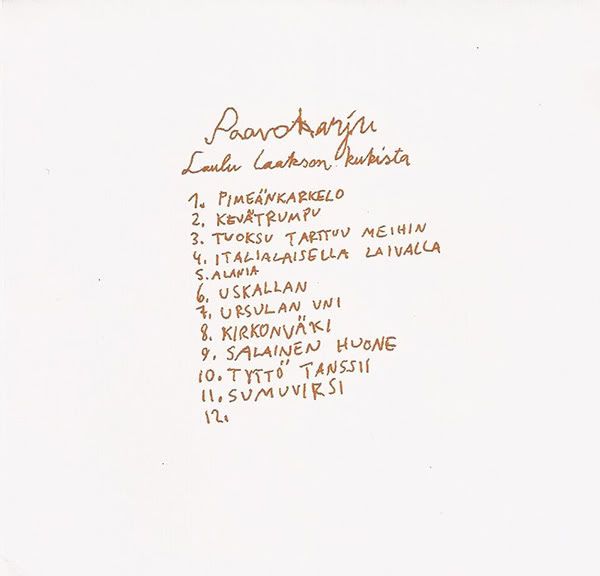 Paavoharju
Laulu Laakson kukista
1. PIMEÄNKARKELO
2. KEVÄTRUMPU
3. TUOKSU TARTTUU MEIHIN
4. ITALIALAISELLA LAIVALLA
5. ALANIA
6. USKALLAN
7. URSULAN UNI
8. KIRKONVÄKI
9. SALAINEN HUONE
10. TYTTÖ TANSSII
11. SUMUVIRSI
12.